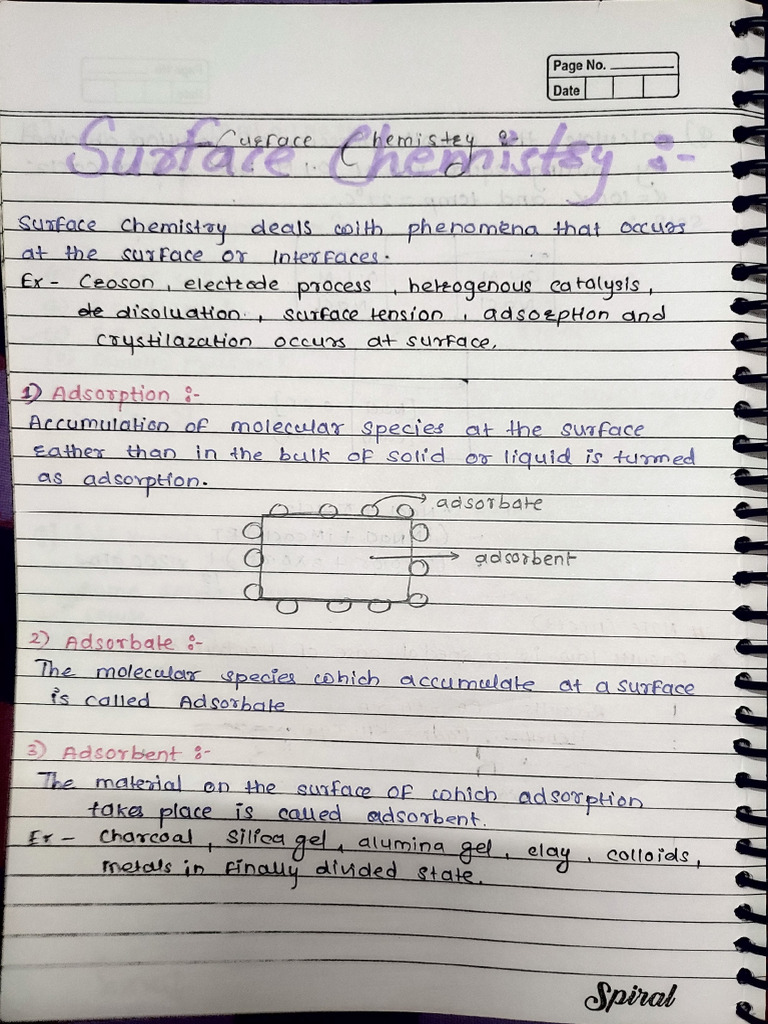 Page No.
Date
Surface Chemistry :-
Surface Chemistry :-
Surface Chemistry deals with phenomena that occurs
at the surface or Interfaces.
Ex- Ceoson, electrode process, hetrogenous catalysis,
de disoluation, surface tension, adsorption and
crystilazation occurs at surface.
1) Adsorption :-
Accumulation of molecular species at the surface
rather than in the bulk of solid or liquid is turmed
as adsorption.
adsorbate
adsorbent
2) Adsorbate :-
The molecular species which accumulate at a surface
is called Adsorbate
3) Adsorbent :-
The material on the surface of which adsorption
takes place is called adsorbent.
Ex - Charcoal, Silica gel, alumina gel, clay, colloids,
metals in finally divided state.
Spiral